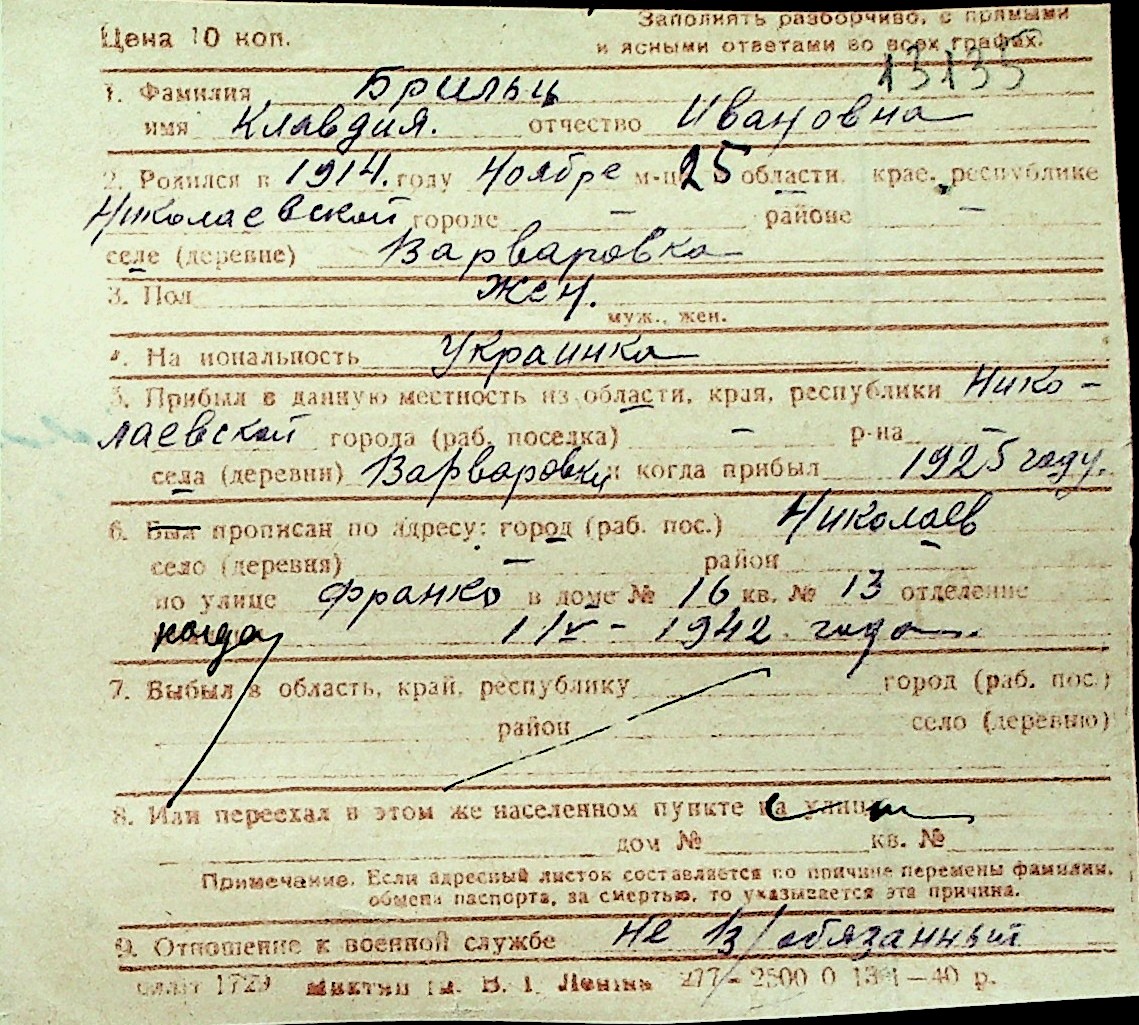 Цена 10 коп.
Заполнять разборчиво, с прямыми
и ясными ответами во всех графах.
13135
1. Фамилия Брильц
имя Клавдия. отчество Ивановна
2. Родился в 1914. году Ноябре м-ц 25 области, крае, республике
Николаевской городе – районе –
селе (деревне) Варваровка
3. Пол жен.
муж., жен.
4. На иональность Украинка
5. Прибыл в данную местность из области, края, республики Нико-
лаевской города (раб. поселка) – р-на –
села (деревни) Варваровки и когда прибыл 1925 году.
6. Был прописан по адресу: город (раб. пос.) Николаев
село (деревня) – район –
по улице Франко в доме № 16 кв. № 13 отделение
когда 1/V - 1942 года.
7. Выбыл в область, край, республику город (раб. пос.)
район село (деревню)
8. Или переехал в этом же населенном пункте на улицу
дом № кв. №
Примечание. Если адресный листок составляется по причине перемены фамилии,
обмена паспорта, за смертью, то указывается эта причина.
9. Отношение к военной службе не в/обязанный
1729 В. І. Леніна 277 – 2500 0 – 40 р.